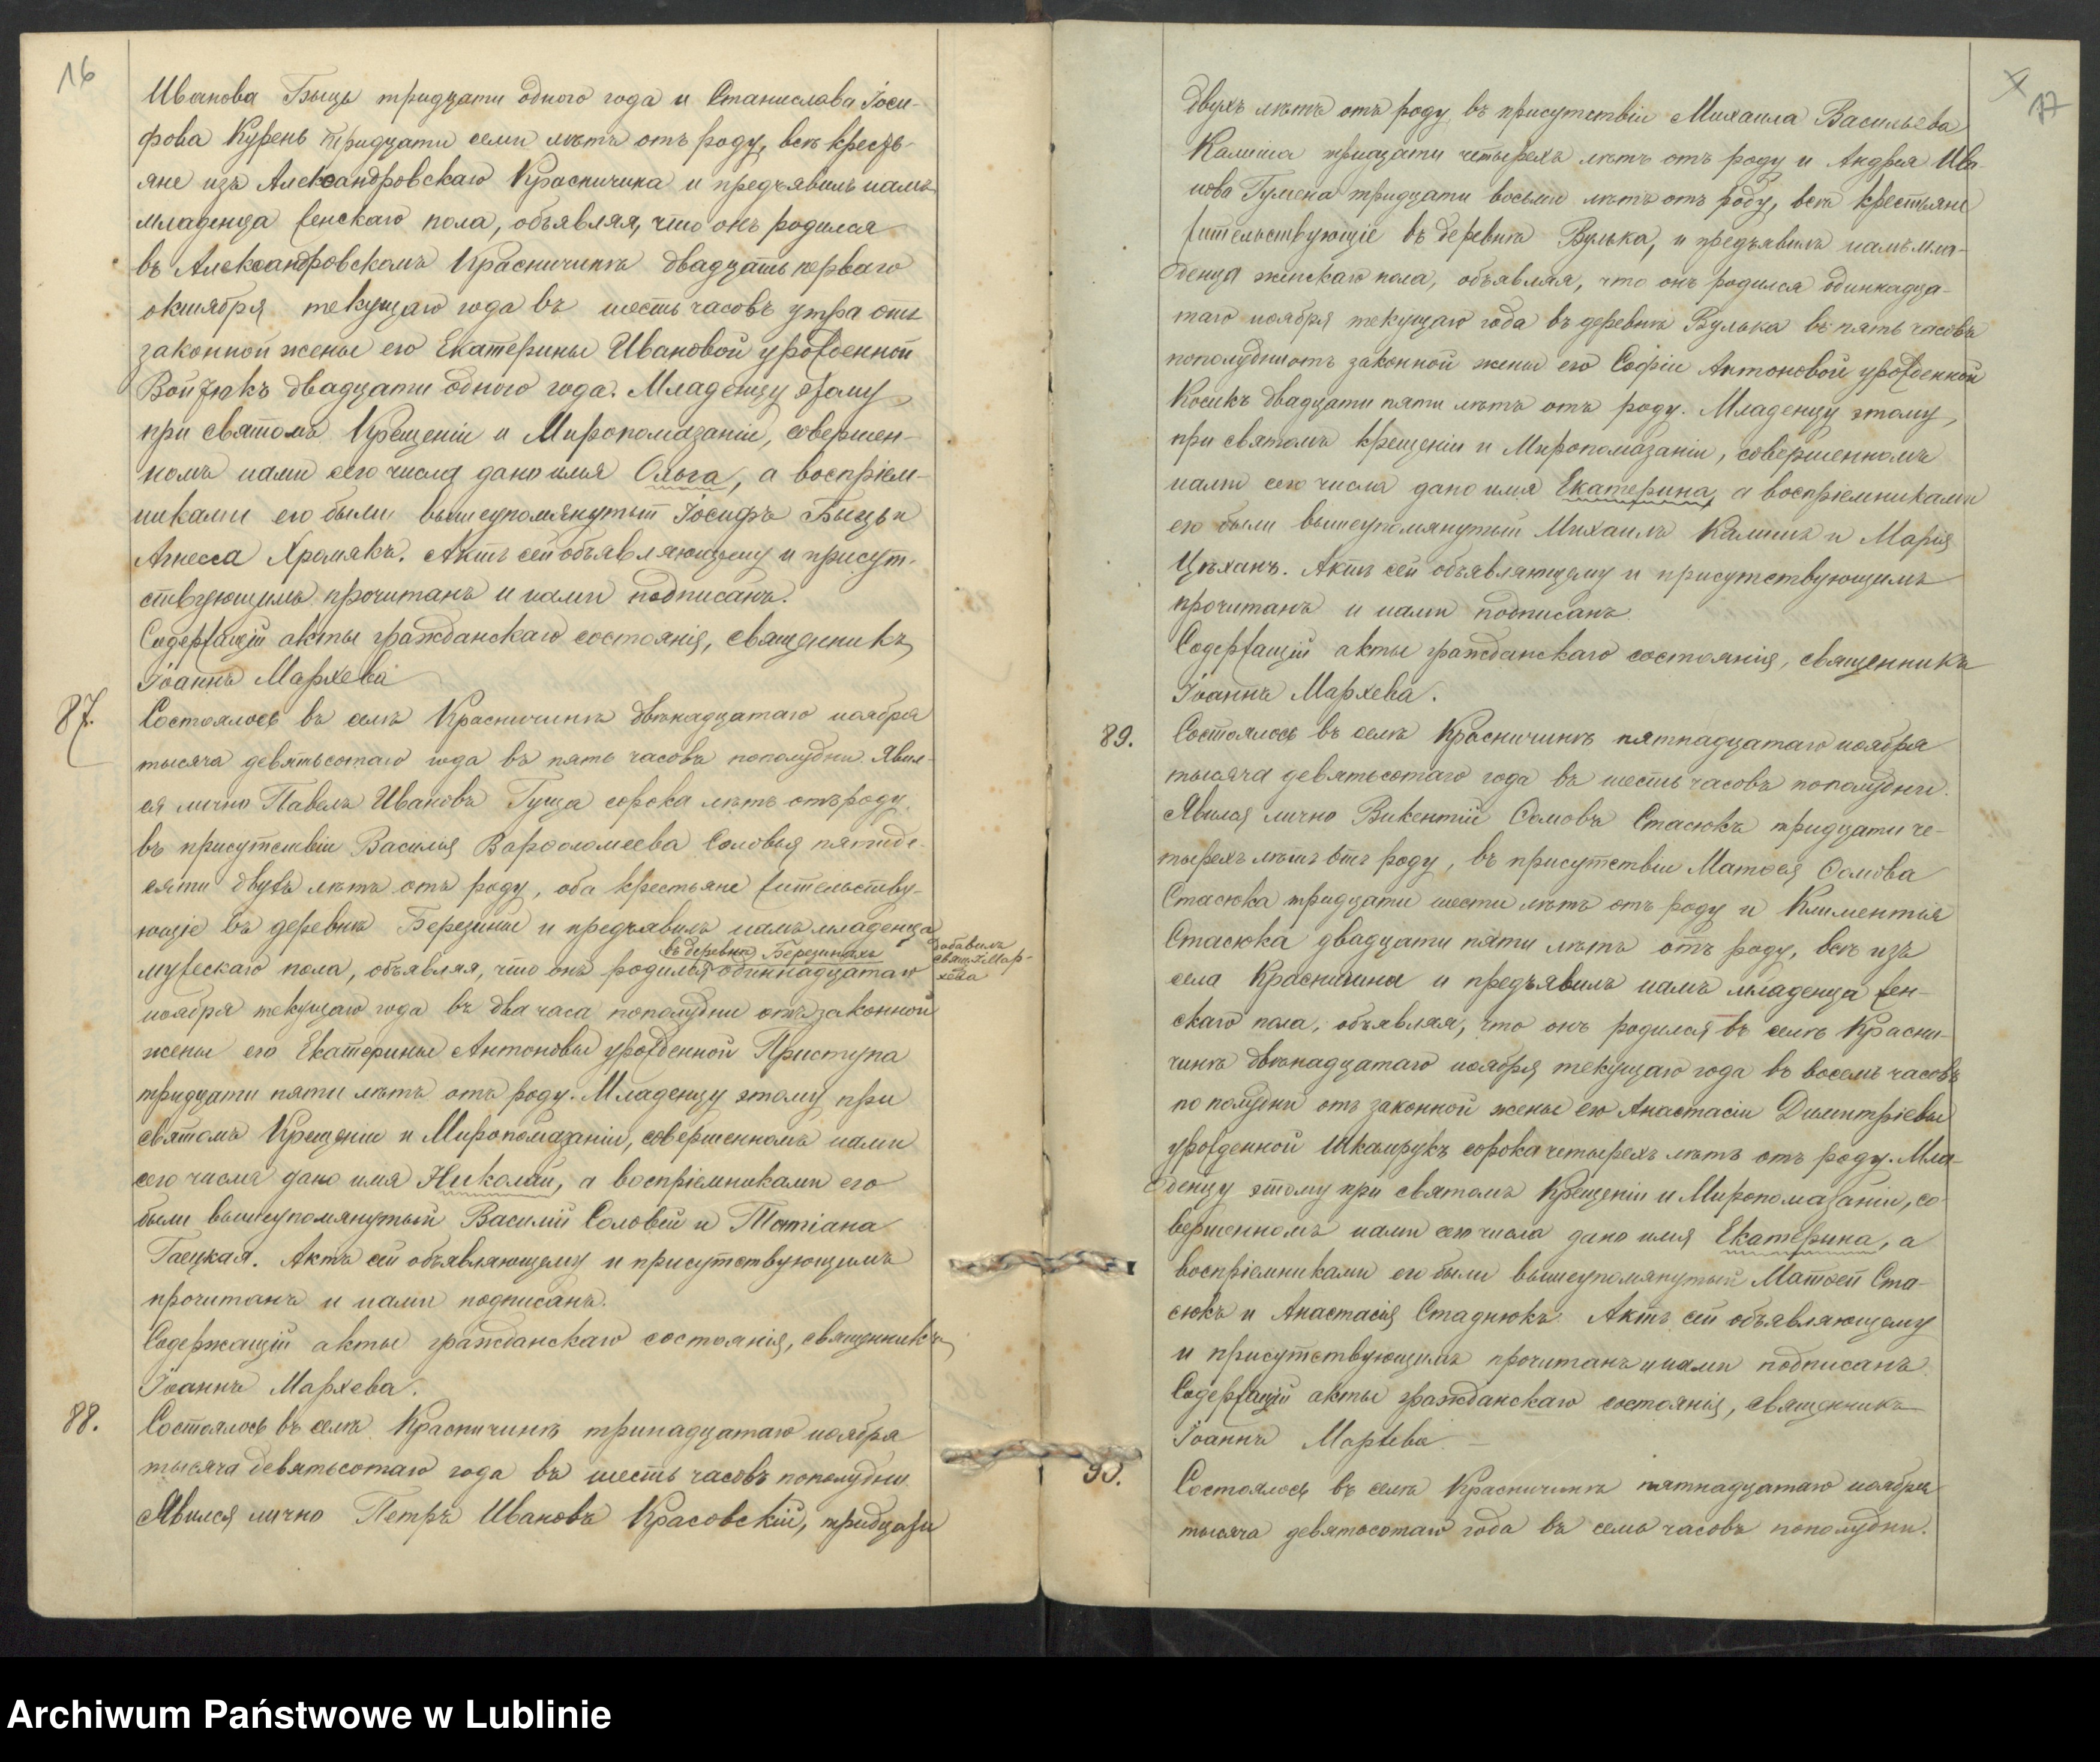 16
Иванова Быць тридцати одного года и Станислава Іоси-
фова Курень тридцати семи лѣтъ отъ роду, всѣ кресть-
яне изъ Александровскаго Красничина и предъявилъ намъ
младенца женскаго пола, объявляя, что онъ родился
въ Александровскомъ Красничинѣ двадцать перваго
октября текущаго года въ шесть часовъ утра отъ
законной жены его Екатерины Ивановой урожденной
Войтюкъ двадцати одного года. Младенцу этому,
при святомъ Крещеніи и Миропомазаніи, совершен-
номъ нами сего числа дано имя Ольга, а воспріем-
никами его были вышеупомянутый Іосифъ Быць и
Агнесса Хромякъ. Актъ сей объявляющему и присут-
ствующимъ прочитанъ и нами подписанъ.
Содержащій акты гражданскаго состоянія, священникъ
Іоаннъ Мархева
87.
Состоялось въ селѣ Красничинѣ двѣнадцатаго ноября
тысяча девятьсотаго года въ пять часовъ пополудни. Явил-
ся лично Павелъ Ивановъ Гуща сорока лѣтъ отъ роду,
въ присутствіи Василія Варѳоломеева Соловья пятиде-
сяти двухъ лѣтъ отъ роду, оба крестьяне жительству-
ющіе въ деревнѣ Березины и предъявилъ намъ младенца
въ деревнѣ Березинахъ
мужескаго пола, объявляя, что онъ родился одиннадцатаго
добавилъ
свящ. І. Мар-
хева
ноября текущаго года въ два часа пополудни отъ законной
жены его Екатерины Антоновы урожденной Приступа
тридцати пяти лѣтъ отъ роду. Младенцу этому при
святомъ Крещеніи и Миропомазаніи, совершенномъ нами
сего числа дано имя Николай, а воспріемниками его
были вышеупомянутый Василій Соловей и Татіана
Гаецкая. Актъ сей объявляющему и присутствующимъ
прочитанъ и нами подписанъ.
Содержащій акты гражданскаго состоянія, священникъ
Іоаннъ Мархева.
88.
Состоялось въ селѣ Красничинѣ тринадцатаго ноября
тысяча девятьсотаго года въ шесть часовъ пополудни.
Явился лично Петръ Ивановъ Красовскій, тридцати
17
двухъ лѣтъ отъ роду въ присутствіи Михаила Васильева
Калиша тридцати четырехъ лѣтъ отъ роду и Андрея Ива-
нова Гумена тридцати восьми лѣтъ отъ роду, всѣ крестьяне
жительствующіе въ деревнѣ Вулька, и предъявилъ намъ мла-
денца женскаго пола, объявляя, что онъ родился одиннадца-
таго ноября текущаго года въ деревнѣ Вулька въ пять часовъ
пополудни отъ законной жены его Софіи Антоновой урожденной
Косикъ двадцати пяти лѣтъ отъ роду. Младенцу этому,
при святомъ крещеніи и Миропомазаніи, совершенномъ
нами сего числа дано имя Екатерина, а воспріемниками
его были вышеупомянутый Михаилъ Калишъ и Марія
Цѣханъ. Актъ сей объявляющему и присутствующимъ
прочитанъ и нами подписанъ.
Содержащій акты гражданскаго состоянія, священникъ
Іоаннъ Мархева.
89.
Состоялось въ селѣ Красничинѣ пятнадцатаго ноября
тысяча девятьсотаго года въ шесть часовъ пополудни.
Явился лично Викентій Ѳомовъ Стасюкъ тридцати че-
тырехъ лѣтъ отъ роду, въ присутствіи Матѳея Ѳомова
Стасюка тридцати шести лѣтъ отъ роду и Климентія
Стасюка двадцати пяти лѣтъ отъ роду, всѣ изъ
села Красничина и предъявилъ намъ младенца жен-
скаго пола, объявляя, что онъ родился въ селѣ Красни-
чинѣ двѣнадцатаго ноября текущаго года въ восемь часовъ
по полудни отъ законной жены его Анастасіи Димитріевы
урожденной Шкамрукъ сорока четырехъ лѣтъ отъ роду. Мла-
денцу этому при святомъ Крещеніи и Миропомазаніи, со-
вершенномъ нами сего числа дано имя Екатерина, а
воспріемниками его были вышеупомянутый Матѳей Ста-
сюкъ и Анастасія Стаднюкъ. Актъ сей объявляющему
и присутствующимъ прочитанъ и нами подписанъ.
Содержащій акты гражданскаго состоянія, священникъ
Іоаннъ Мархева.
90.
Состоялось въ селѣ Красничинѣ пятнадцатаго ноября
тысяча девятьсотаго года въ семь часовъ пополудни.
Archiwum Państwowe w Lublinie